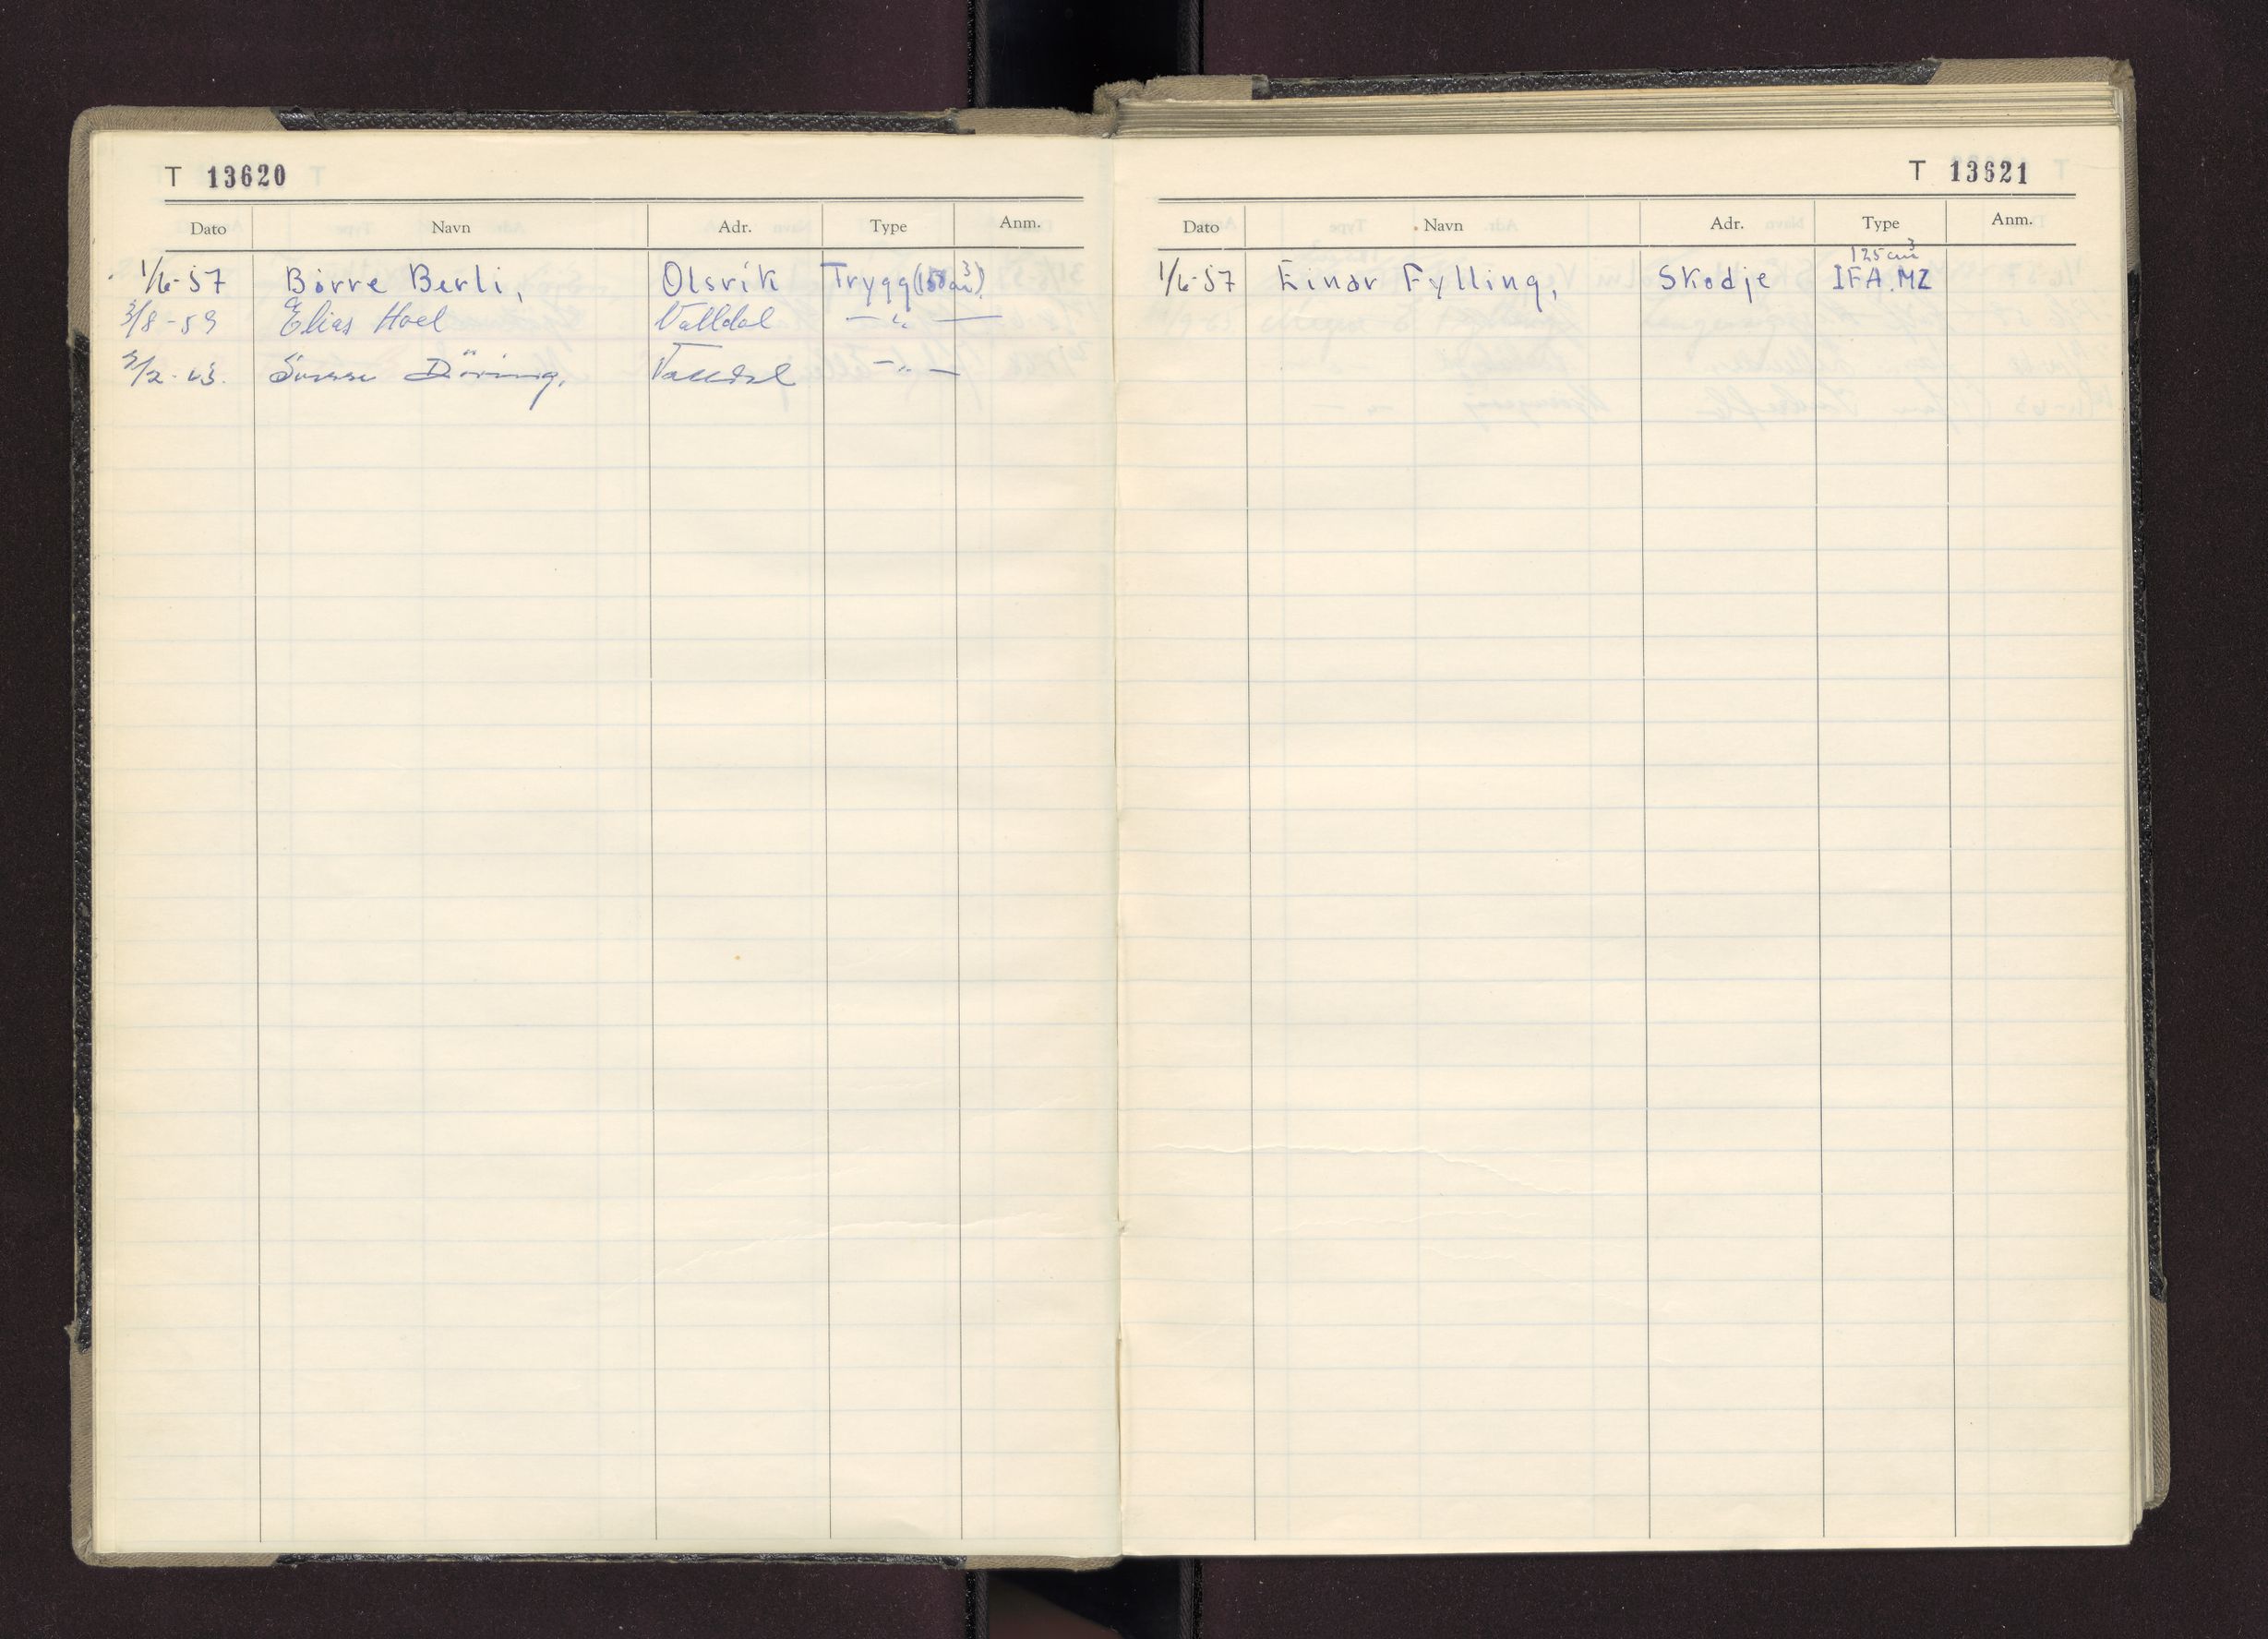 T 13620
Dato Navn Adr. Type Anm.
1/6-57 Børre Berli, Olsvik Trygg (150 cm³)
3/8-59 Elias Hoel Valldal — " —
5/2-63. Döving, Valldal — " —
T 13621
Dato Navn Adr. Type Anm.
125 cm³
1/6-57 Einar Fylling, Skodje IFA.MZ